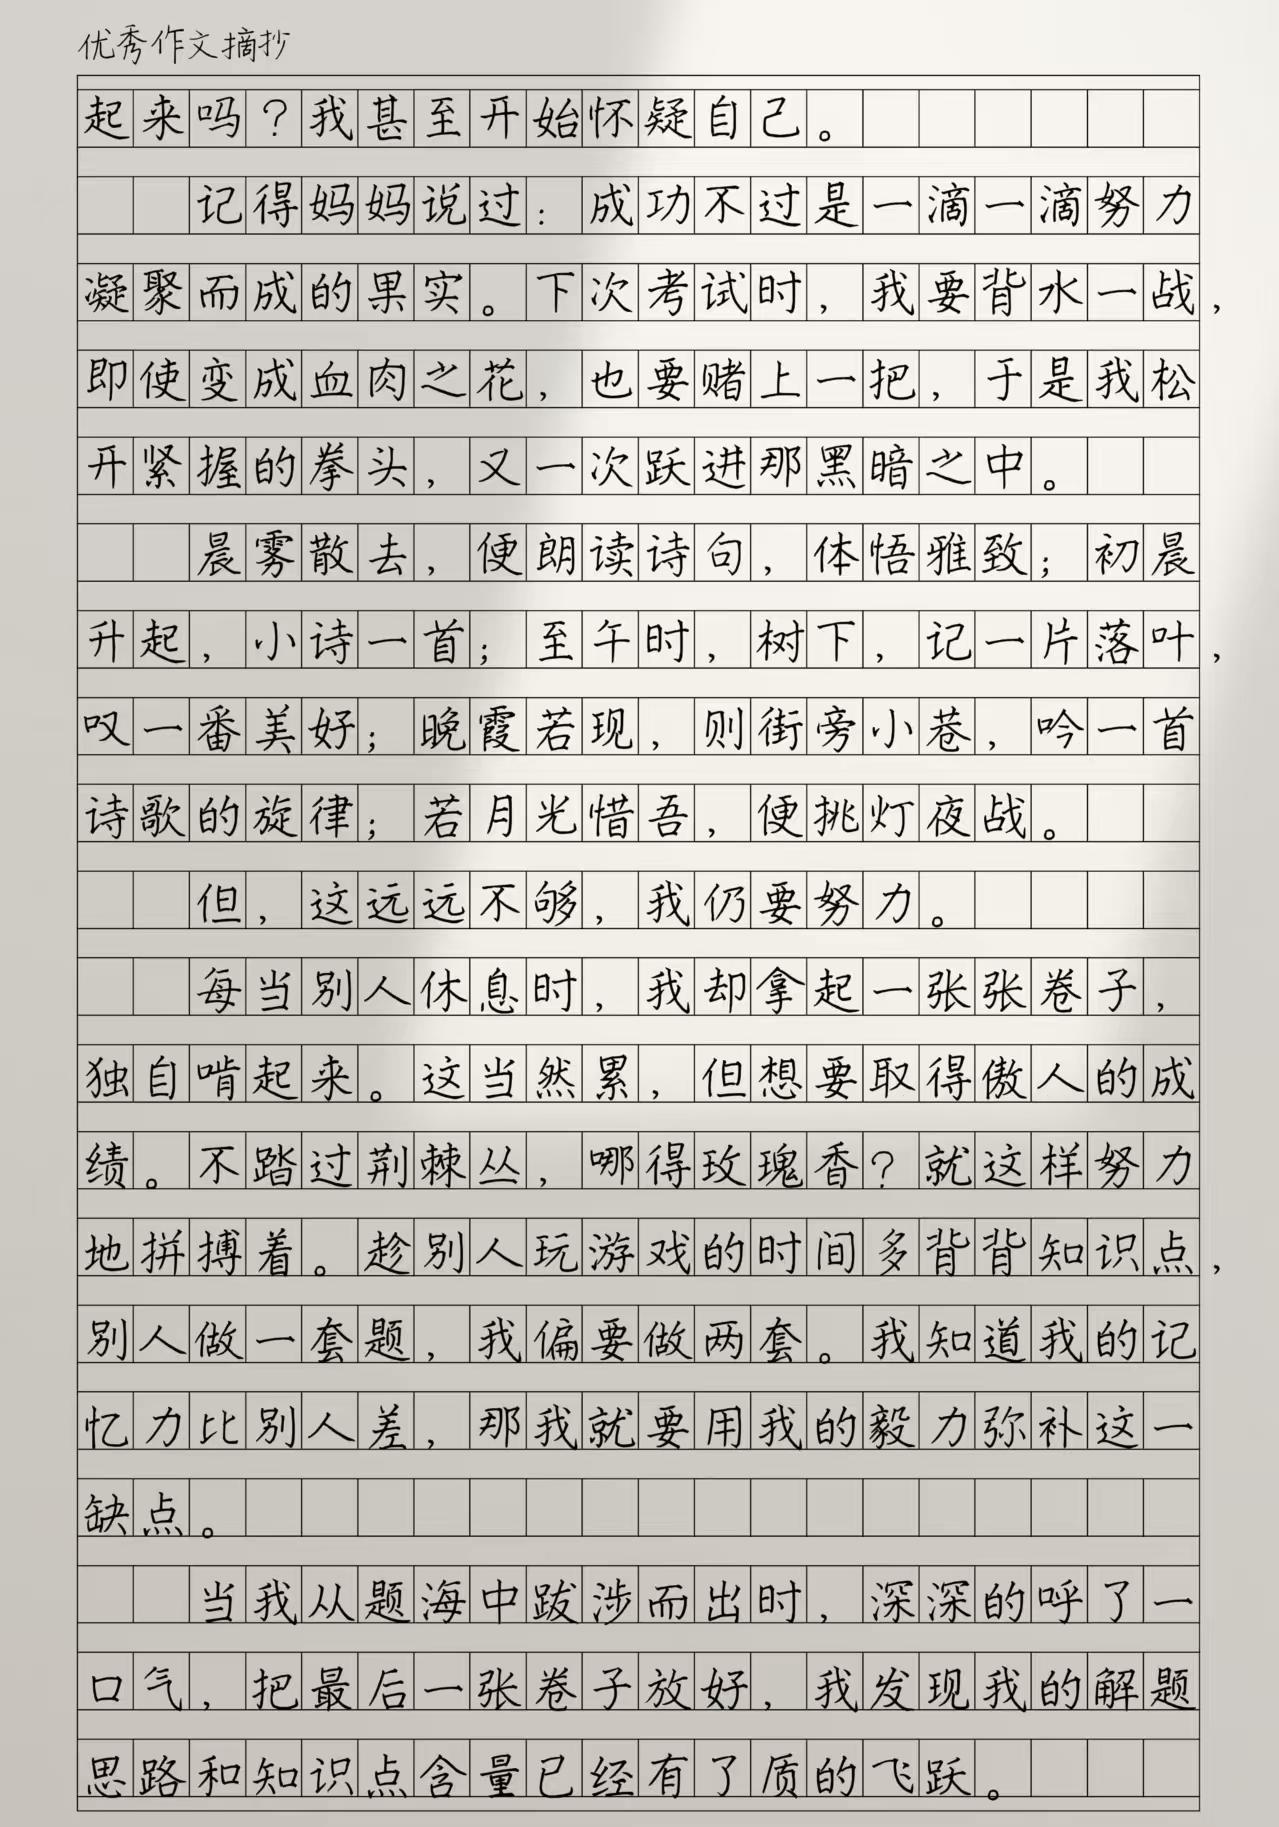 优秀作文摘抄
起来吗？我甚至开始怀疑自己。
记得妈妈说过：成功不过是一滴一滴努力
凝聚而成的果实。下次考试时，我要背水一战，
即使变成血肉之花，也要赌上一把，于是我松
开紧握的拳头，又一次跃进那黑暗之中。
晨雾散去，便朗读诗句，体悟雅致；初晨
升起，小诗一首；至午时，树下，记一片落叶，
叹一番美好；晚霞若现，则街旁小巷，吟一首
诗歌的旋律；若月光惜吾，便挑灯夜战。
但，这远远不够，我仍要努力。
每当别人休息时，我却拿起一张张卷子，
独自啃起来。这当然累，但想要取得傲人的成
绩。不踏过荆棘丛，哪得玫瑰香？就这样努力
地拼搏着。趁别人玩游戏的时间多背背知识点，
别人做一套题，我偏要做两套。我知道我的记
忆力比别人差，那我就要用我的毅力弥补这一
缺点。
当我从题海中跋涉而出时，深深的呼了一
口气，把最后一张卷子放好，我发现我的解题
思路和知识点含量已经有了质的飞跃。